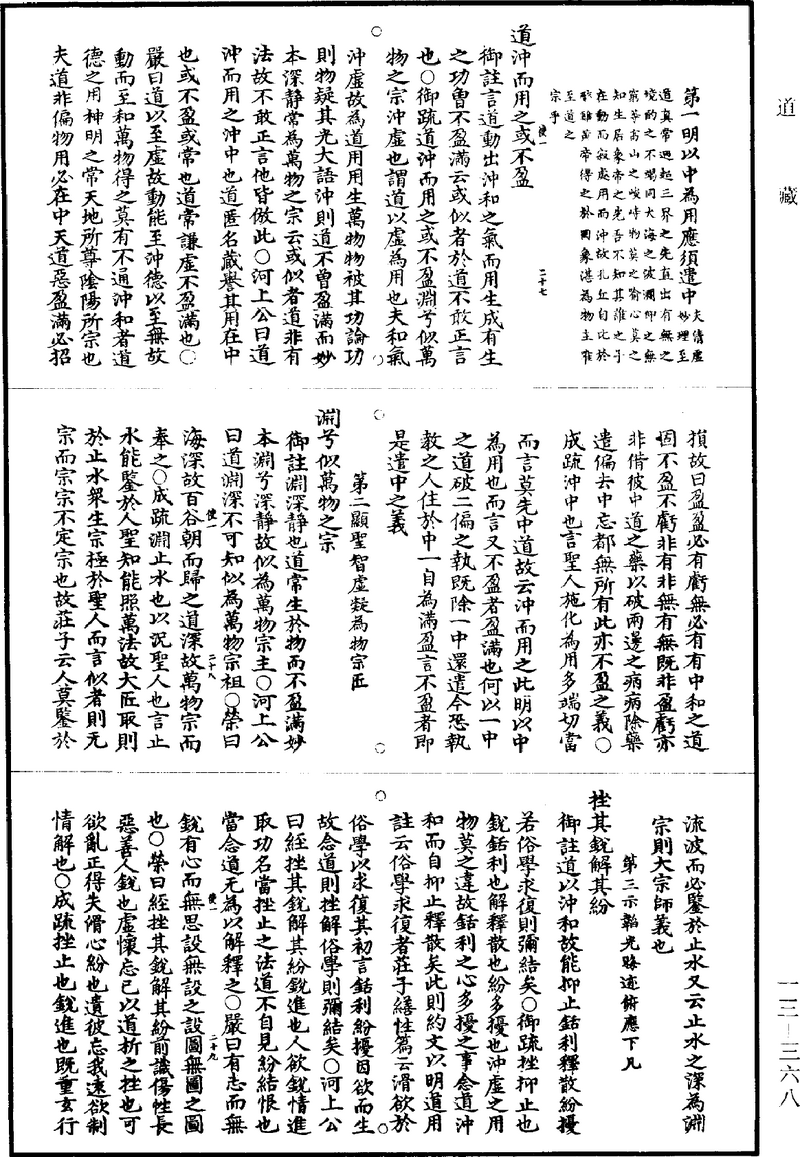 道藏
第一明以中為用應須遣中夫儔虛
道真常迥超三界之先直出有無之
境的之不端同大海之波瀾仰之無
窮等高山之峻峙物莫之喻心莫之
知生居象帝之先吾不知其誰之子
在動而寂處用而沖故孔丘自比於
黃帝得之於罔象湛為物主
至道之
宗乎
道沖而用之或不盈
使一
二十七
御註言道動出沖和之氣而用生成有生
之功曾不盈滿云或似者於道不敢正言
也〇御疏道沖而用之或不盈淵兮似萬
物之宗沖虛也謂道以虛為用也夫和氣
沖虛故為道用用生萬物物被其功論功
則物疑其光大語沖則道不曾盈滿而妙
本深靜常為萬物之宗云或似者道非有
法故不敢正言他皆倣此〇河上公曰道
沖而用之沖中也道匿名藏譽其用在中
也或不盈或常也道常謙虛不盈滿也〇
嚴曰道以至虛故動能至沖德以至無故
動而至和萬物得之莫有不通沖和者道
德之用神明之常天地所尊陰陽所宗也
夫道非偏物用必在中天道惡盈滿必招
損故曰盈盈必有虧無必有有中和之道
固不盈不虧非有非無有無既非盈虧亦
非借彼中道之藥以破兩邊之病病除藥
遣偏去中忘都無所有此亦不盈之義〇
成疏沖中也言聖人施化為用多端切當
而言莫先中道故云沖而用之此明以中
為用也而言又不盈者盈滿也何以一中
之道破二偏之執既除一中還遣今恐執
教之人住於中一自為滿盈言不盈者即
是遣中之義
第二顯聖智虛凝為物宗匠
淵兮似萬物之宗
御註淵深靜也道常生於物而不盈滿妙
本淵兮深靜故似為萬物宗主〇河上公
曰道淵深不可知似為萬物宗祖〇榮曰
使一
二十八
海深故百谷朝而歸之道深故萬物宗而
奉之〇成疏淵止水也以況聖人也言止
水能鑒於人聖知能照萬法故大匠取則
於止水眾生宗極於聖人而言似者則无
宗而宗宗不定宗也故莊子云人莫鑒於
流波而必鑒於止水又云止水之深為淵
宗則大宗師義也
第三示韜光晦迹俯應下凡
挫其銳解其紛
御註道以沖和故能抑止銛利釋散紛擾
若俗學求復則彌結矣〇御疏挫抑止也
銳銛利也解釋散也紛多擾也沖虛之用
物莫之違故銛利之心多擾之事念道沖
和而自抑止釋散矣此則約文以明道用
註云俗學求復者莊子繕性篇云滑欲於
俗學以求復其初言銛利紛擾因欲而生
故念道則挫解俗學則彌結矣〇河上公
曰經挫其銳解其紛銳進也人欲銳情進
取功名當挫止之法道不自見紛結恨也
當念道无為以解釋之〇嚴曰有志而無
使一
二十九
銳有心而無思設無設之設圖無圖之圖
也〇榮曰經挫其銳解其紛前識傷性長
惡善人銳也虛懷忘己以道折之挫也可
欲亂正得失滑心紛也遺彼忘我遠欲制
情解也〇成疏挫止也銳進也既重玄行
一三—三六八